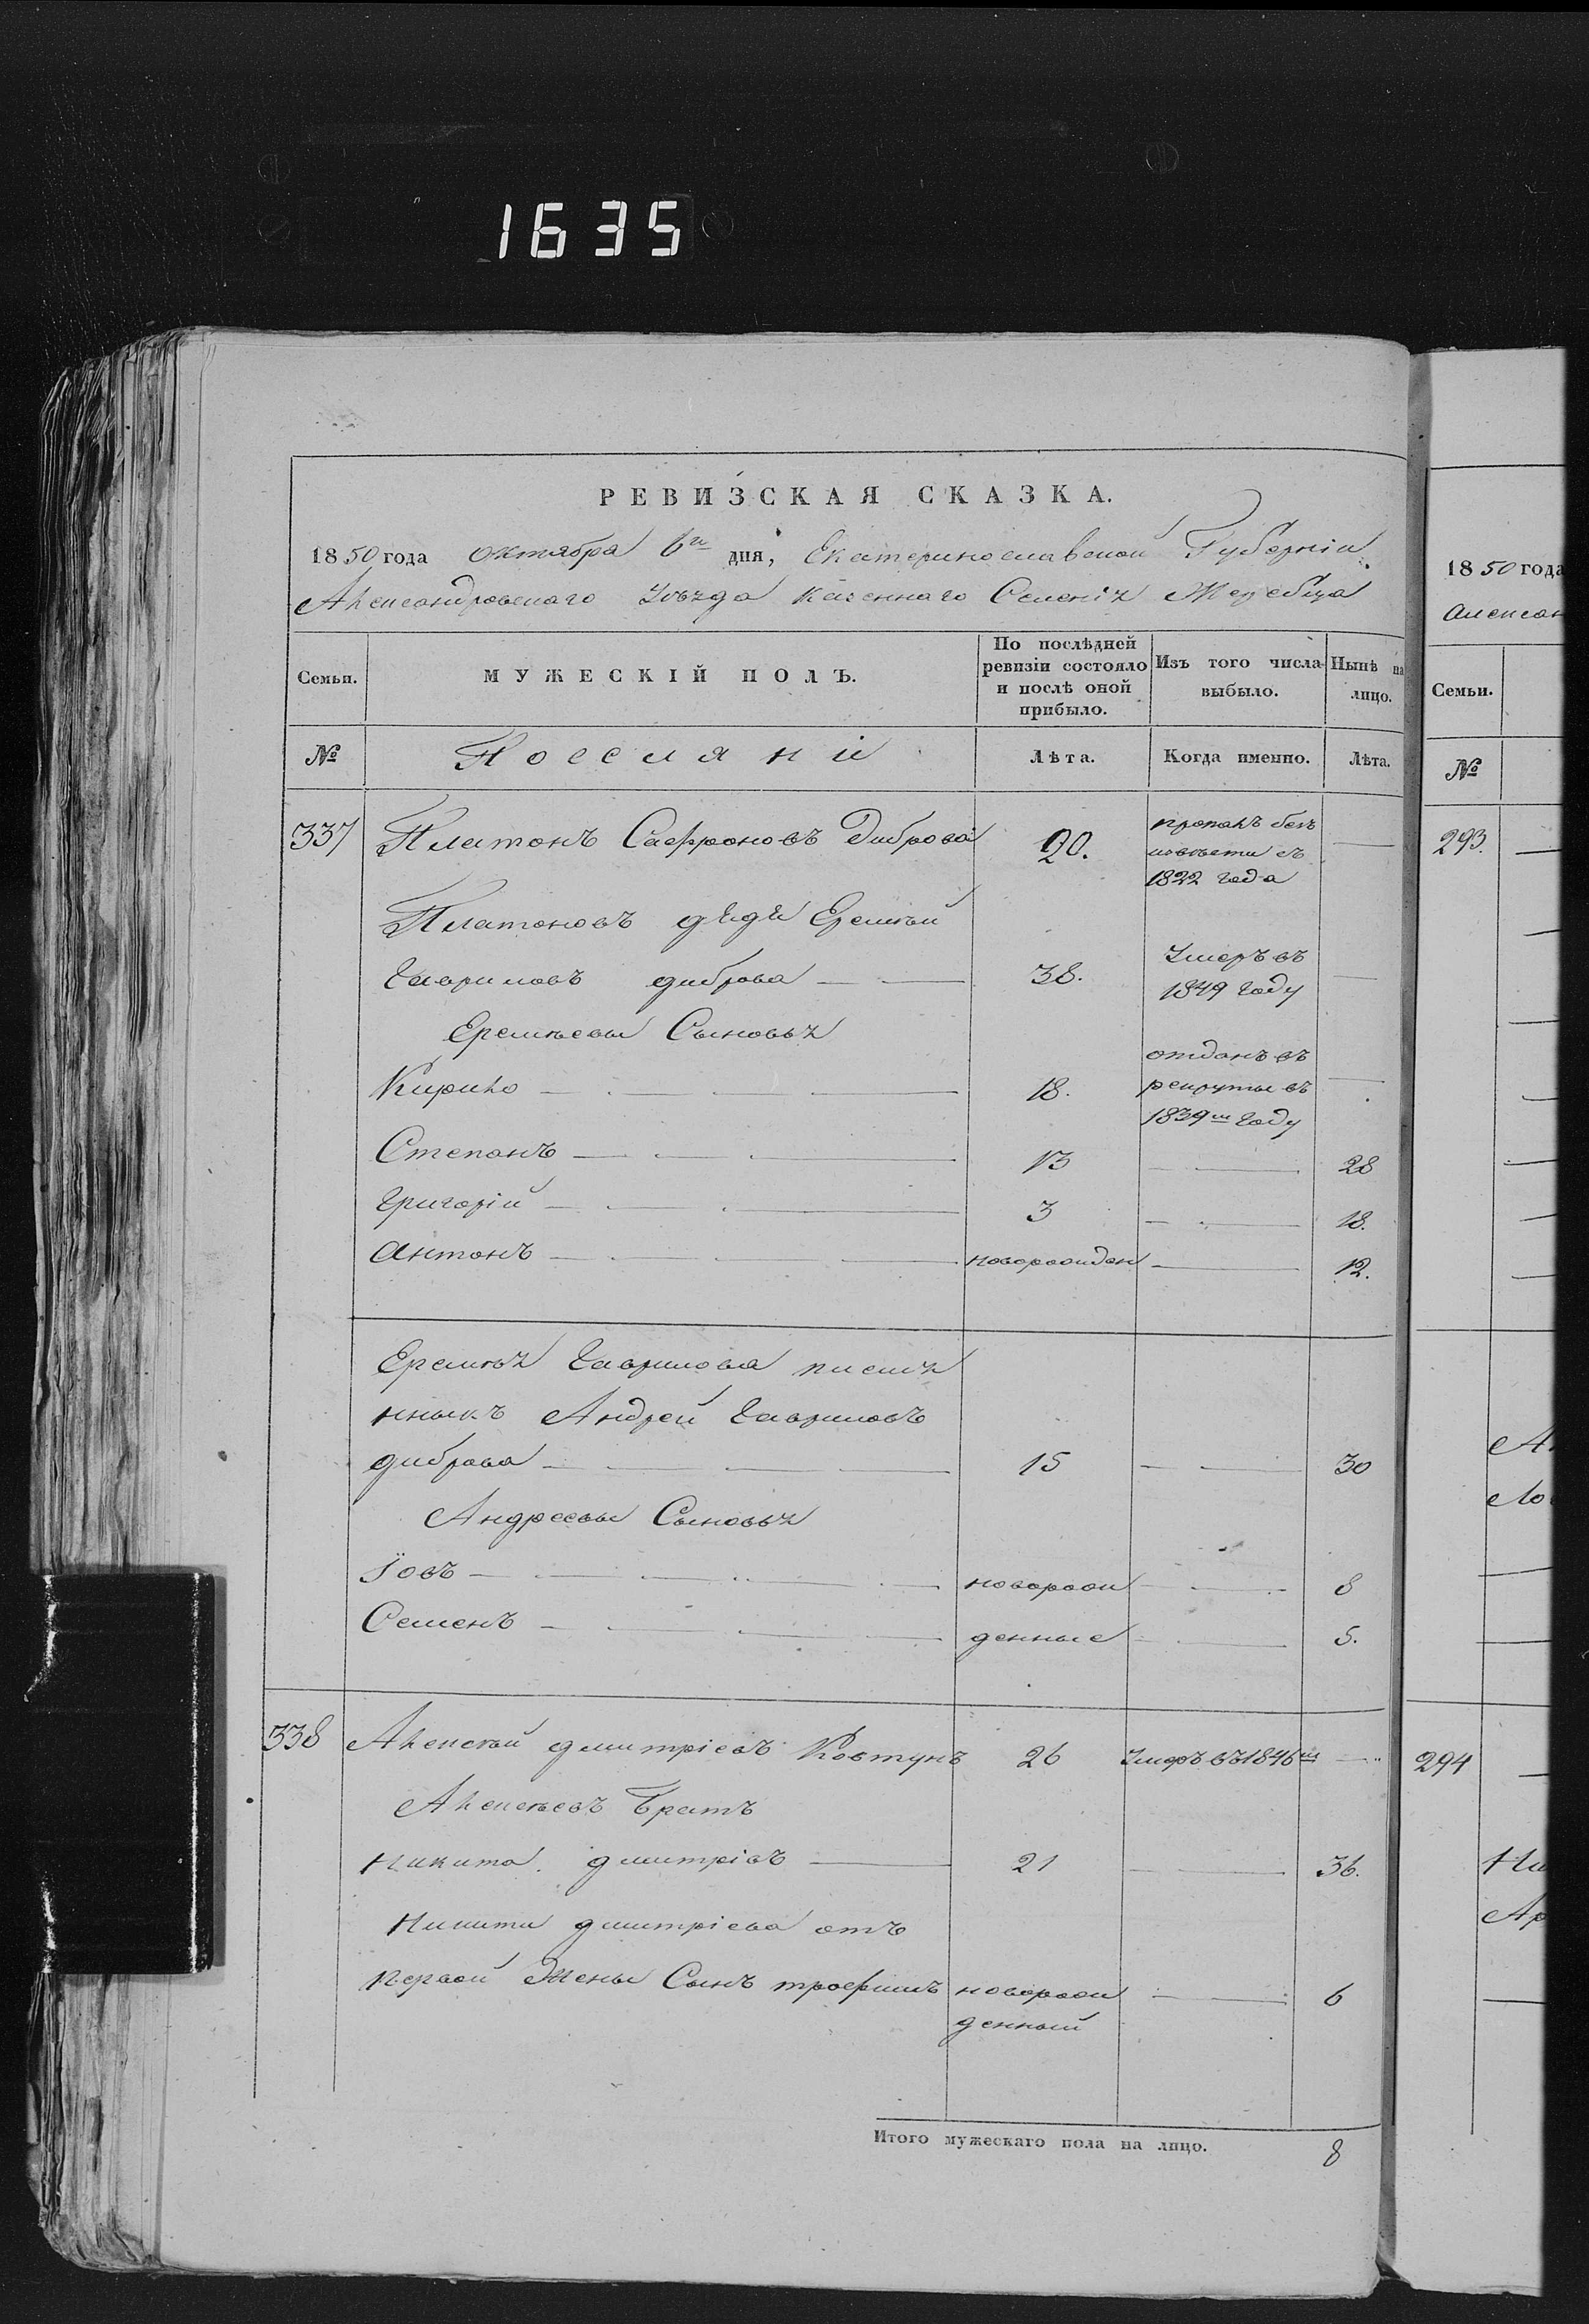 1635
РЕВИЗСКАЯ СКАЗКА.
1850 года октября 6го дня, Екатеринославской Губерніи
Александровскаго Уѣзда казеннаго Селенія Жеребца
Семьи.
МУЖЕСКІЙ ПОЛЪ.
По послѣдней ревизіи состояло и послѣ оной прибыло.
Изъ того числа выбыло.
Нынѣ на лицо.
№
Посѣляни
Лѣта.
Когда именно.
Лѣта.
337 Платонъ Сафроновъ Диброва 20. пропалъ безъ
извѣсти съ
1822 года
Платоновъ дядя Еремѣй
Гавриловъ диброва 38. Умеръ въ
1849 Году
Еремѣевы Сыновья
Кирило 18. отданъ въ
рекруты въ
1839м Году
Степанъ 13 28
Григорій 3 18.
Антонъ новорожден 12.
Еремѣя Гаврилова племя
нникъ Андрей Гавриловъ
диброва 15 30
Андреевы Сыновья
Іовъ новорож 8
Семенъ денные 5.
338 Алексѣй дмитріевъ Ковтунъ 26 Умеръ въ 1846м
Алексѣевъ Братъ
Никита дмитріевъ 21 36.
Никиты дмитріева отъ
первой Жены Сынъ трофимъ новорож 6
денный
Итого мужескаго пола на лицо. 8
1850 года
Алексан
Семьи.
№
293.
А
Ло
294
Ни
Ар